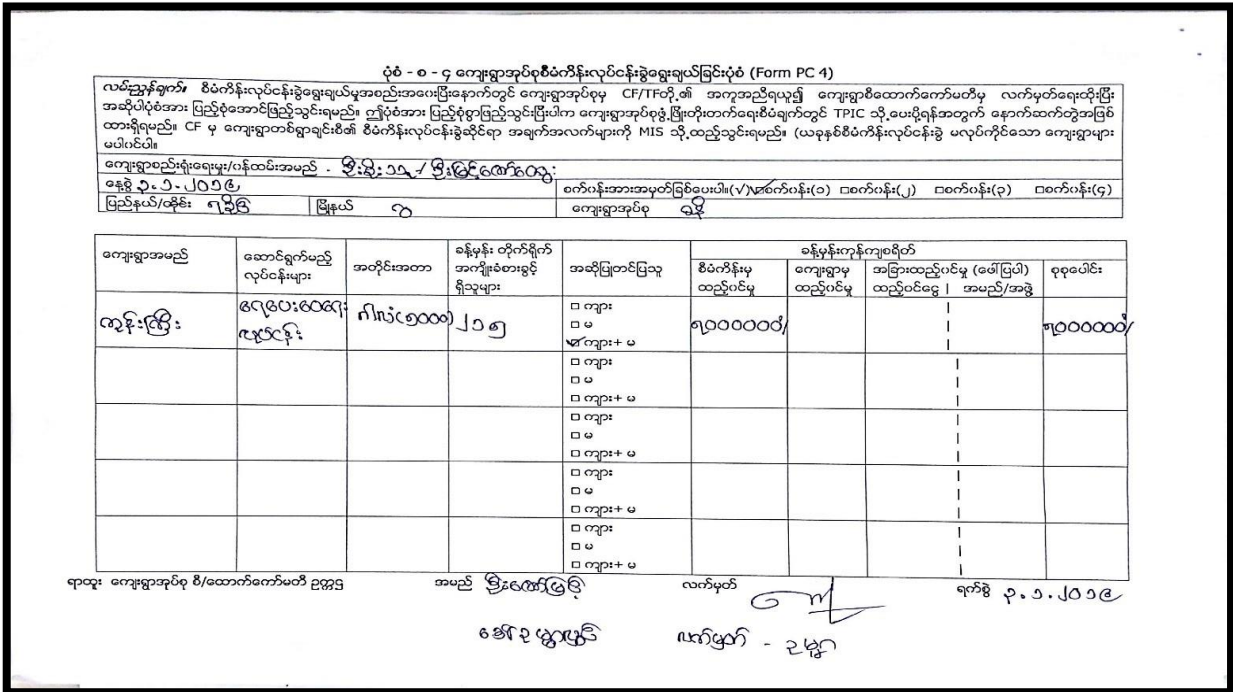 ပုံစံ - စ - ၄ ကျေးရွာအုပ်စုစီမံကိန်းလုပ်ငန်းခွဲရွေးချယ်ခြင်းပုံစံ (Form PC 4)
လမ်းညွှန်ချက်။ စီမံကိန်းလုပ်ငန်းခွဲရွေးချယ်မှုအစည်းအဝေးပြီးနောက်တွင် ကျေးရွာအုပ်စုမှ CF/TFတို့၏ အကူအညီရယူ၍ ကျေးရွာစီထောက်ကော်မတီမှ လက်မှတ်ရေးထိုးပြီး
အဆိုပါပုံစံအား ပြည့်စုံအောင်ဖြည့်သွင်းရမည်။ ဤပုံစံအား ပြည့်စုံစွာဖြည့်သွင်းပြီးပါက ကျေးရွာအုပ်စုဖွံ့ဖြိုးတိုးတက်ရေးစီမံချက်တွင် TPIC သို့ပေးပို့ရန်အတွက် နောက်ဆက်တွဲအဖြစ်
ထားရှိရမည်။ CF မှ ကျေးရွာတစ်ရွာချင်းစီ၏ စီမံကိန်းလုပ်ငန်းခွဲဆိုင်ရာ အချက်အလက်များကို MIS သို့ထည့်သွင်းရမည်။ (ယခုနှစ်စီမံကိန်းလုပ်ငန်းခွဲ မလုပ်ကိုင်သော ကျေးရွာများ
မပါဝင်ပါ။
ကျေးရွာစည်းရုံးရေးမှူး/ဝန်ထမ်းအမည် -
နေ့စွဲ ၃.၁.၂၀၁၉ စက်ဝန်းအားအမှတ်ခြစ်ပေးပါ။(√) စက်ဝန်း(၁) စက်ဝန်း(၂) စက်ဝန်း(၃) စက်ဝန်း(၄)
ပြည်နယ်/တိုင်း ရခိုင် မြို့နယ် ဂွ ကျေးရွာအုပ်စု
ကျေးရွာအမည် ဆောင်ရွက်မည့် လုပ်ငန်းများ အတိုင်းအတာ ခန့်မှန်း တိုက်ရိုက် အကျိုးခံစားခွင့် ရှိသူများ အဆိုပြုတင်ပြသူ ခန့်မှန်းကုန်ကျစရိတ်
စီမံကိန်းမှ ထည့်ဝင်မှု ကျေးရွာမှ ထည့်ဝင်မှု အခြားထည့်ဝင်မှု (ဖေါ်ပြပါ) ထည့်ဝင်ငွေ | အမည်/အဖွဲ့ စုစုပေါင်း
ကျွန်းကြီး ရေပေးဝေရေး လုပ်ငန်း ဂါလံ(၅၀၀၀) ၂၁၅ ကျား
မ
ကျား+ မ ၅၀၀၀၀၀၀/ ၅၀၀၀၀၀၀/
ကျား
မ
ကျား+ မ
ကျား
မ
ကျား+ မ
ကျား
မ
ကျား+ မ
ကျား
မ
ကျား+ မ
ရာထူး ကျေးရွာအုပ်စု စီ/ထောက်ကော်မတီ ဥက္ကဋ္ဌ အမည် ဦးဇော်မြင့် လက်မှတ် ရက်စွဲ ၃.၁.၂၀၁၉
လက်မှတ် -